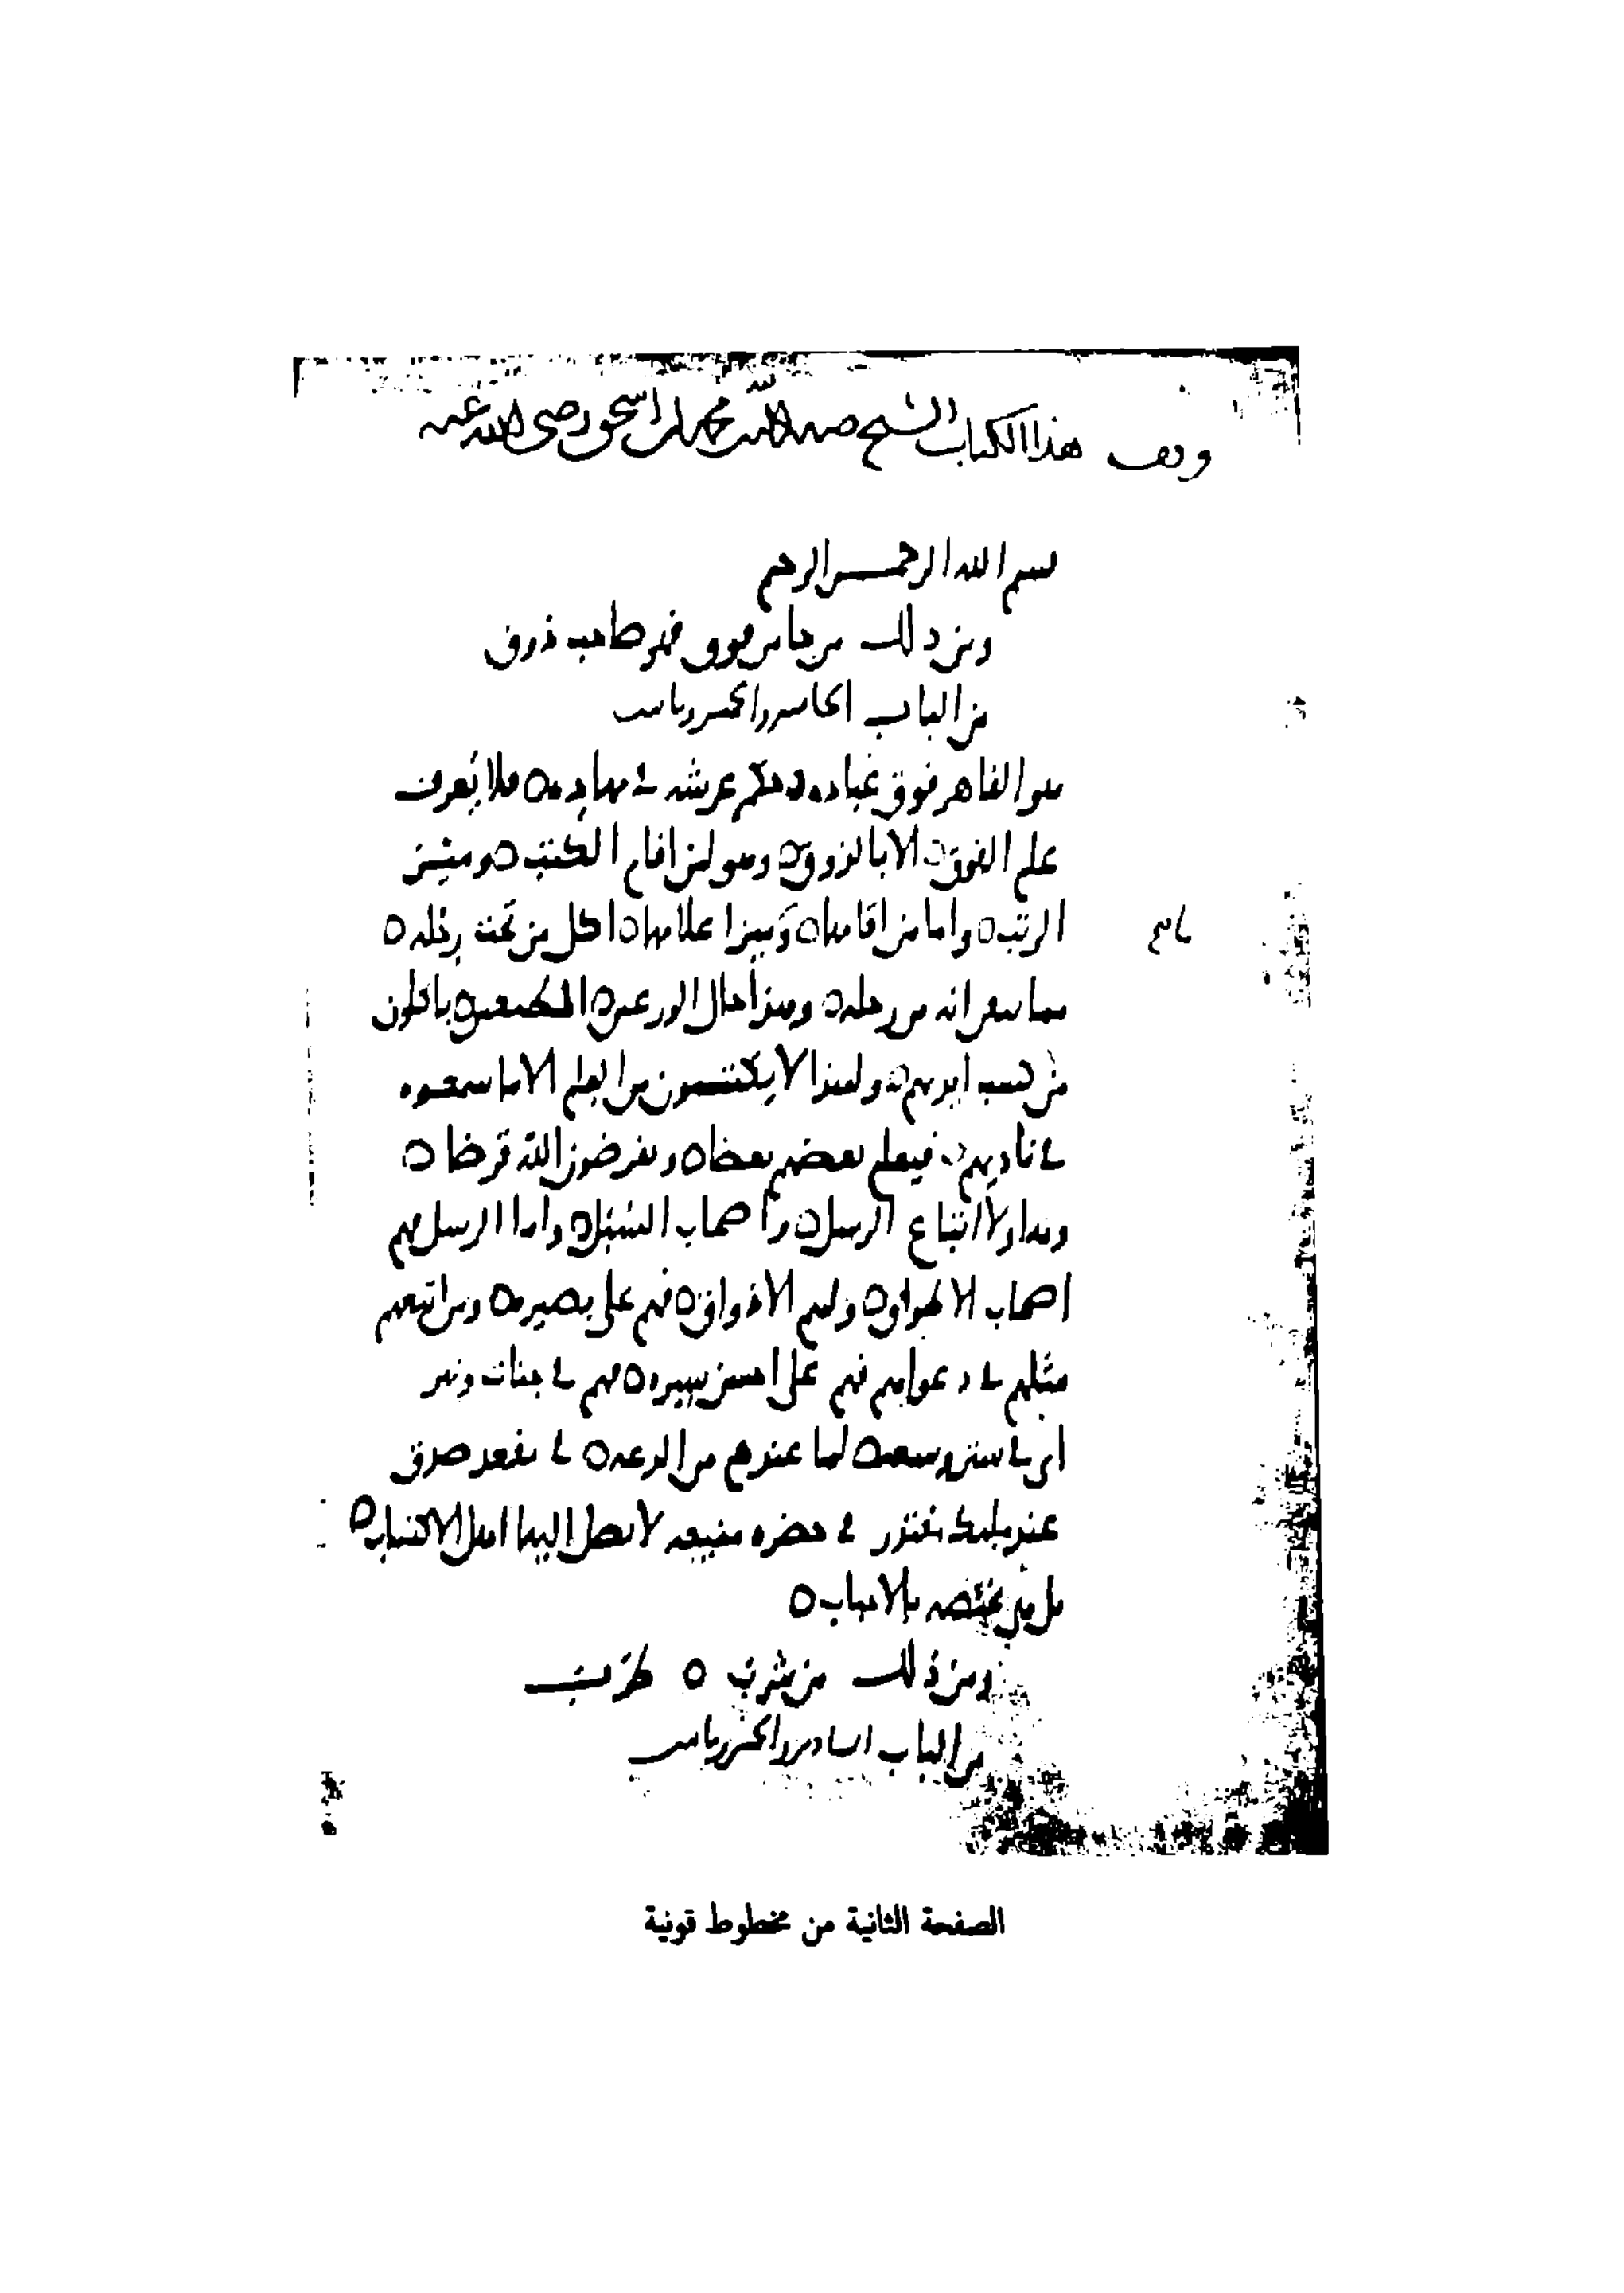 وقف هذا الكتاب الشيخ محمد بن اسحق رضي الله عنه
بسم الله الرحمن الرحيم
ومن ذلك من جا من فوق فهو صاحب ذوق
من الباب الخامس والخمسين وثلاث مايه
هو القاهر فوق عباده وحكم عرشه في مهاده ٥ فلا يعرف
علم الفوق ٥ الا بالذوق ٥ وهو لمن اقام الكتب ٥ وميز
الرتب ٥ واما من اقامها ٥ وميز اعلامها ٥ اكل من تحت رجله ٥
مما سعى اليه من رجله ٥ وهذا حال الورعين ٥ ياكلون
من كسب ايديهم ٥ ولهذا لا يكتسبون من العلم الا ما سمعوه
في ناديهم ٥ فيعلم بعضهم بعضا ٥ ويقرضون الله قرضا ٥
وهاولا اتباع الرسل ٥ واصحاب السبل ٥ واما الرسل فهم
اصحاب ٥ ولهم الاذواق ٥ فهم على بصيرة ٥ ومن اتبعهم
مثلهم في دعواهم فهم على احسن سيره ٥ فهم في جنات ونهر
اي في ستر وسعه ٥ لما عندهم من الدعه ٥ في مقعد صدق
عند مليك مقتدر في حضره منيعه لا يصل اليها اهل الاكتساب ٥
بل هي مختصه بالاحباب ٥
ومن ذلك من شرب ٥ طرب
من الباب السادس والخمسين وثلاث مايه
الصفحة الثانية من مخطوط قونية